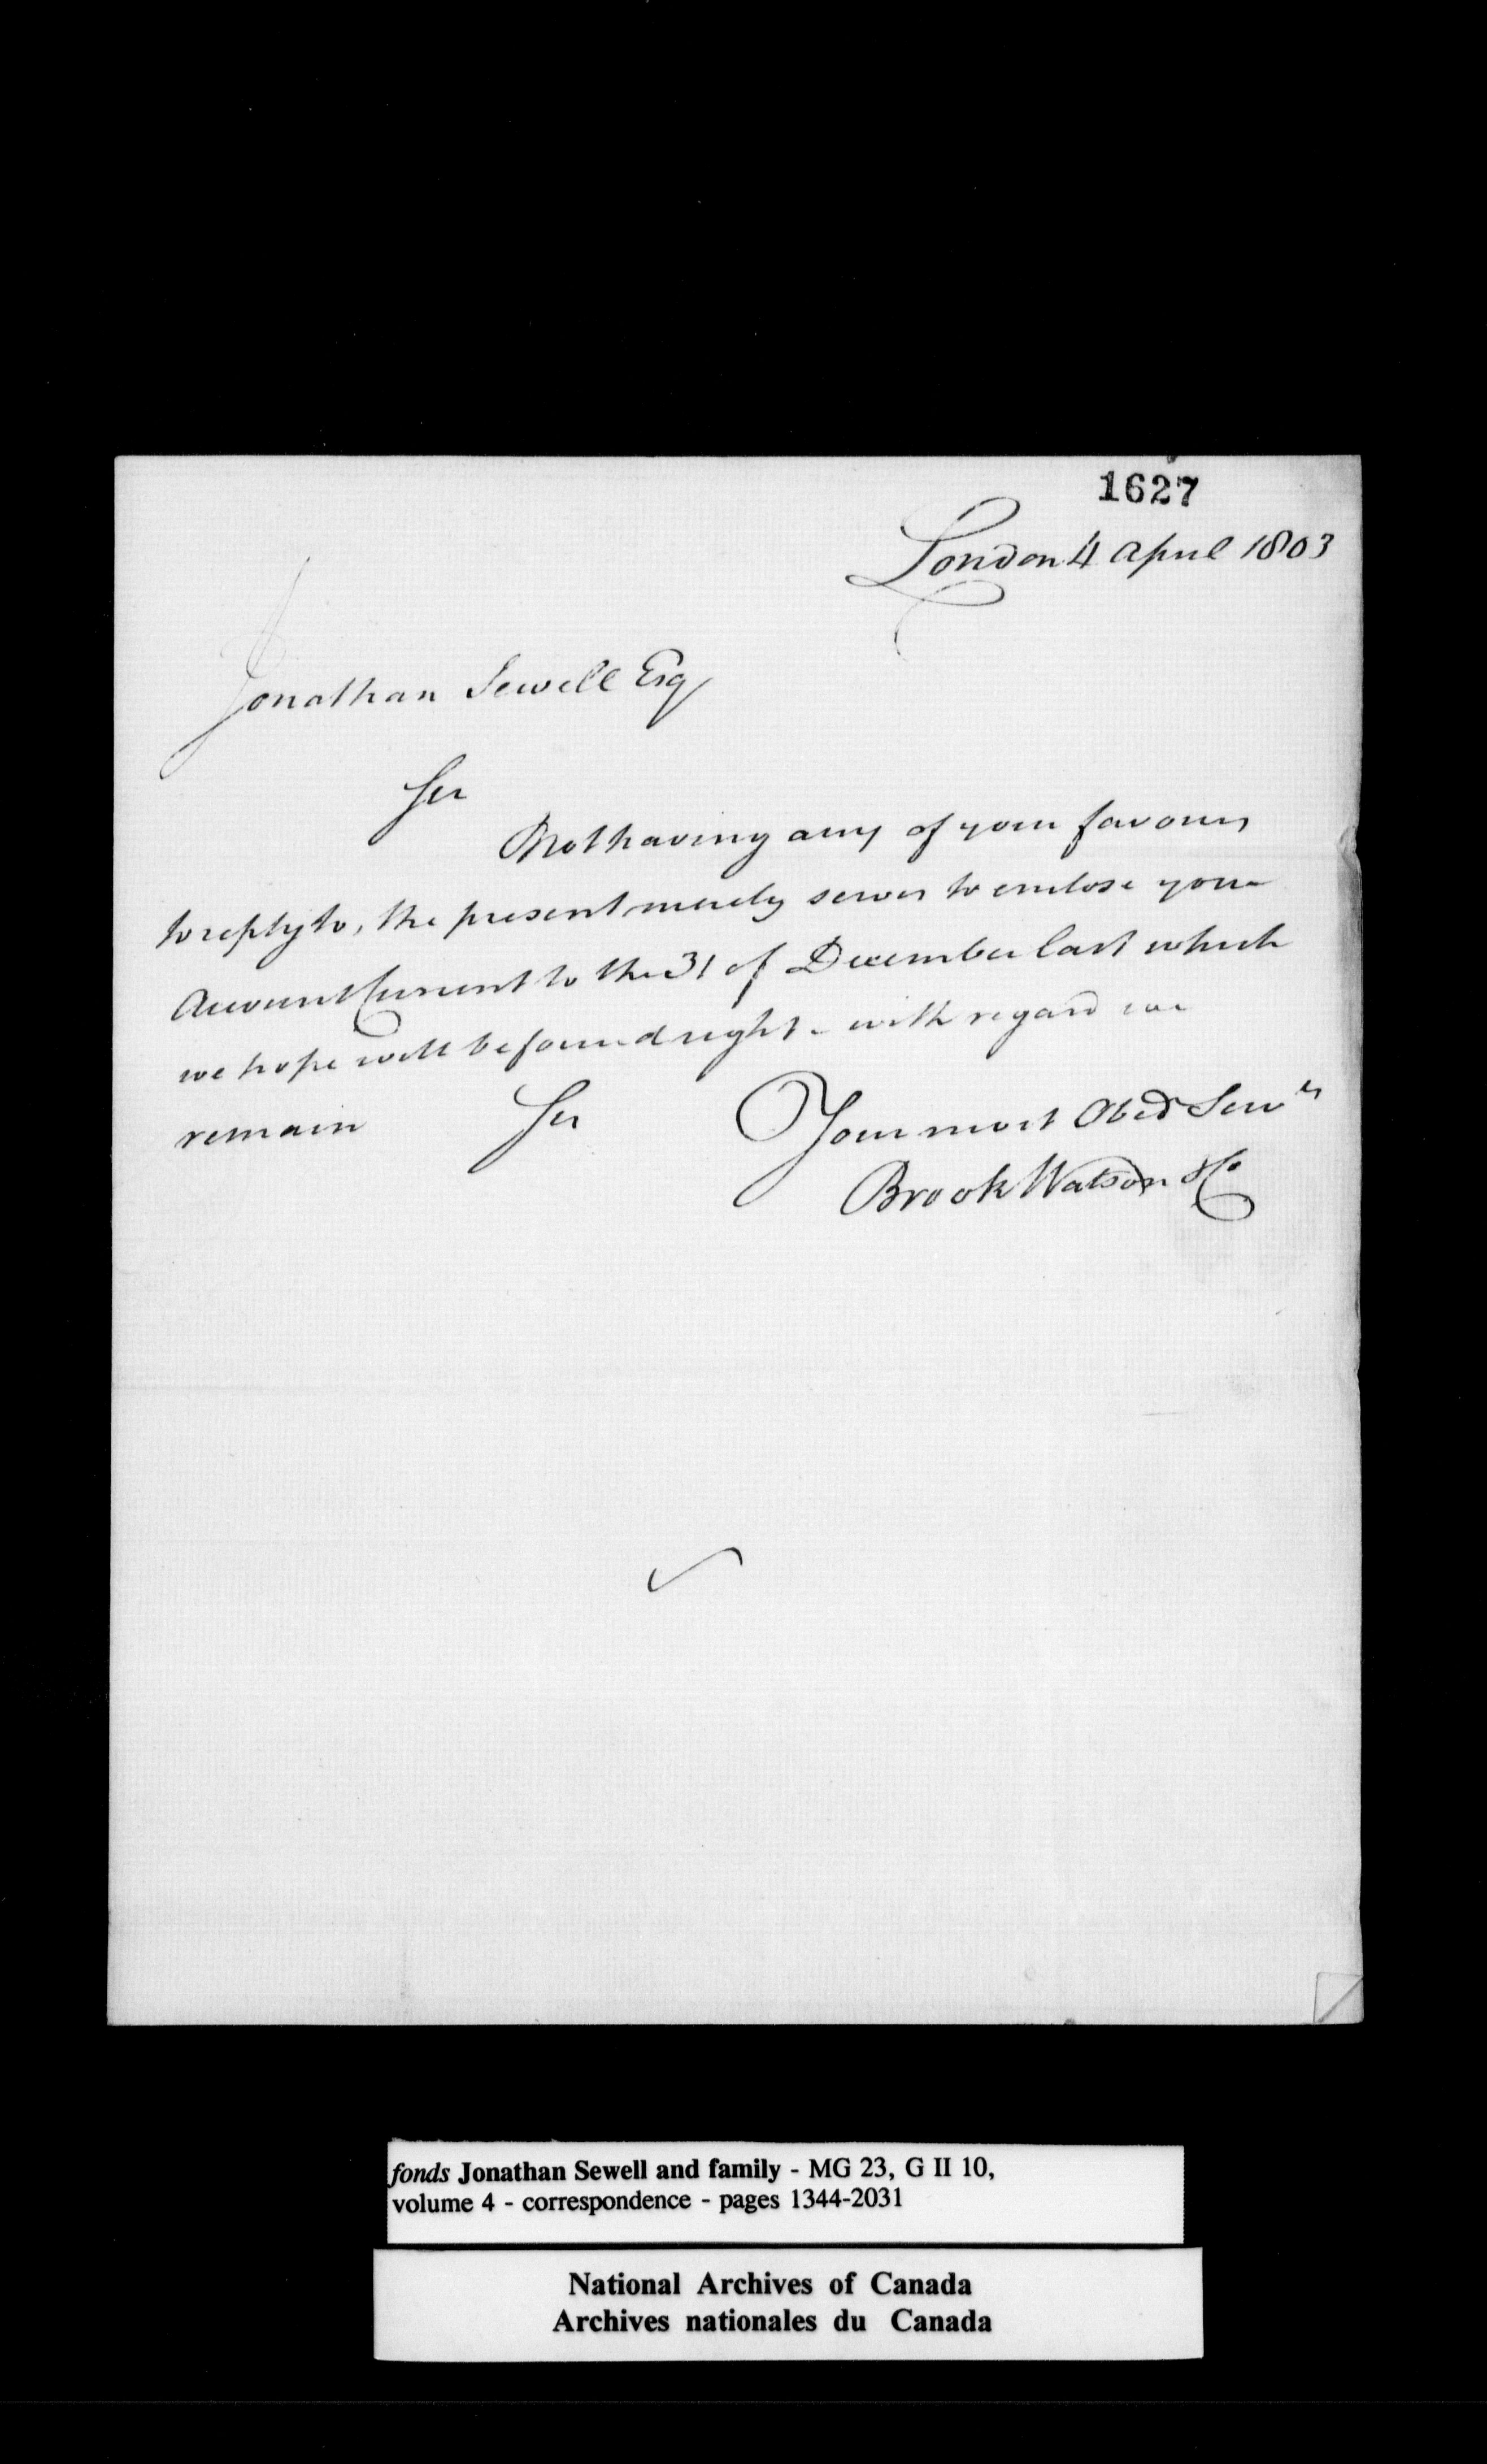 1627
London 4 April 1803
Jonathan Sewell Esq
Sir
Not having any of your favours
to reply to, the present merely serves to enclose your
Account Current to the 31 of December last which
we hope will be found right - with regard we
remain Sir Your most Obed Serv ts
Brook Watson & Co
fonds Jonathan Sewell and family - MG 23, G II 10,
volume 4 - correspondence - pages 1344-2031
National Archives of Canada
Archives nationales du Canada